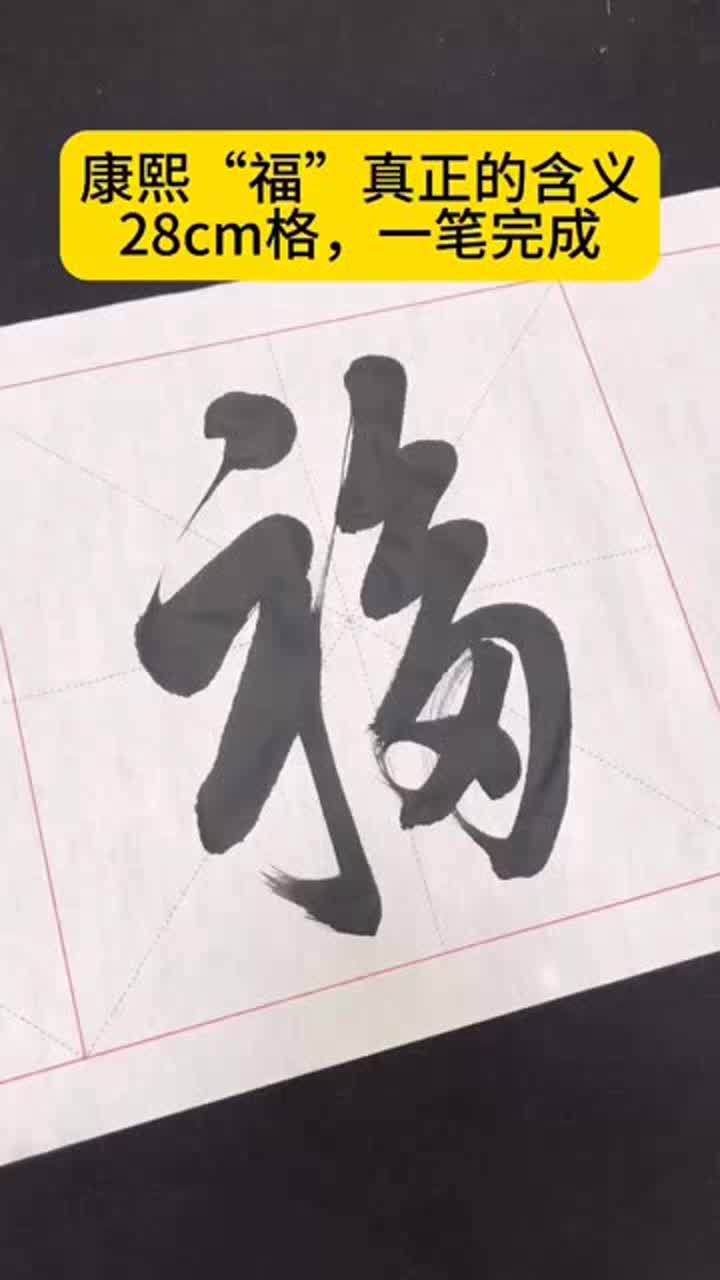 康熙“福”真正的含义
28cm格，一笔完成
福